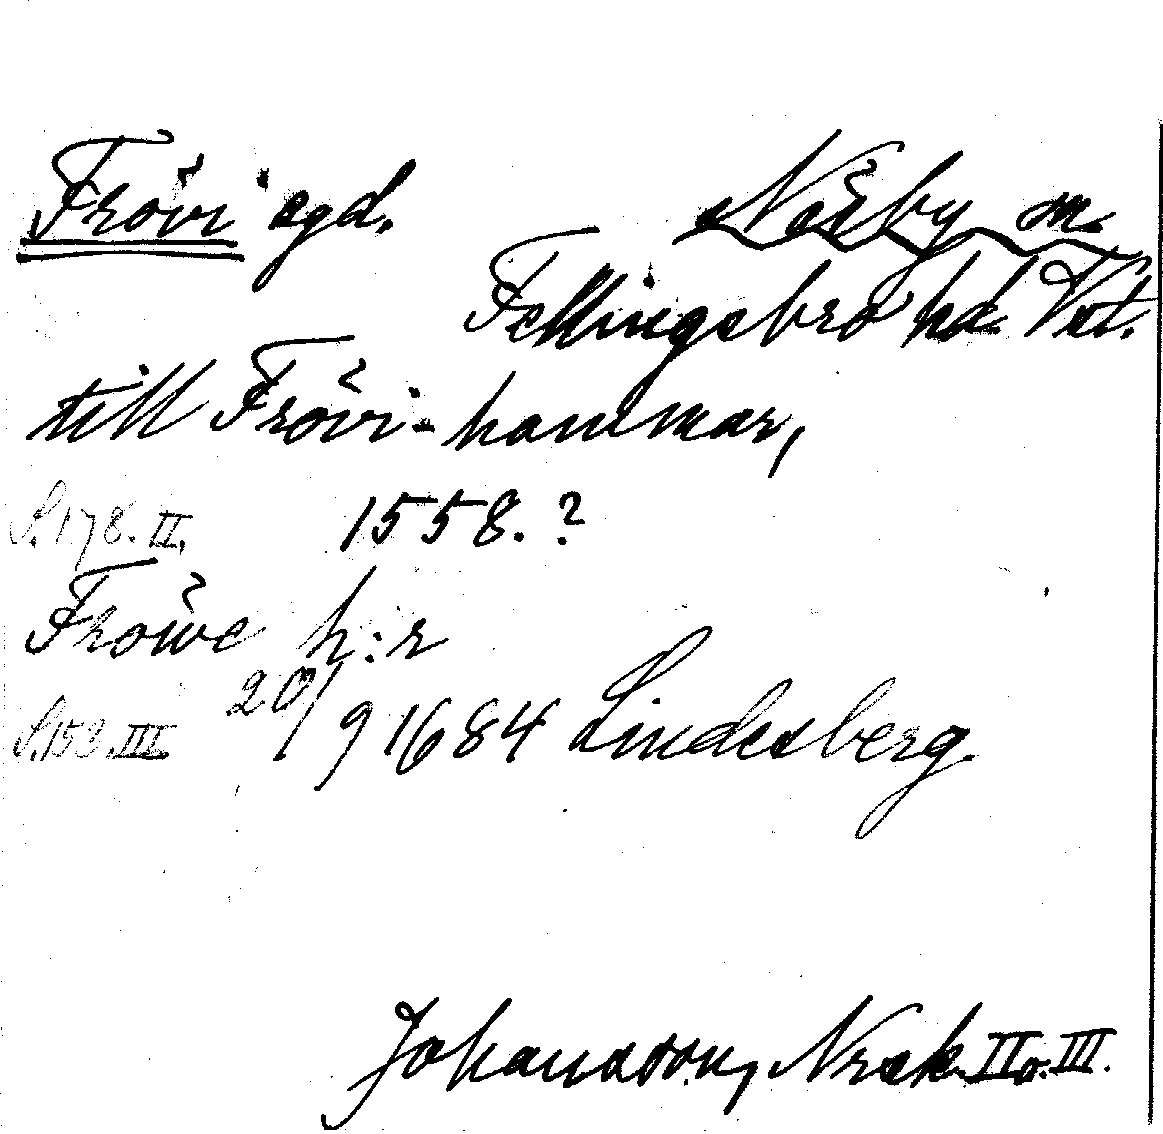 Frövi egd. Näsby sn.
Fellingsbro hd. Vstm.
till Frövi-hammar,
S. 178. II. 1558. ?
Fröwe h:r
S. 153. III 20/9 1684 Lindesberg.
Johansson, Norask. II o. III.